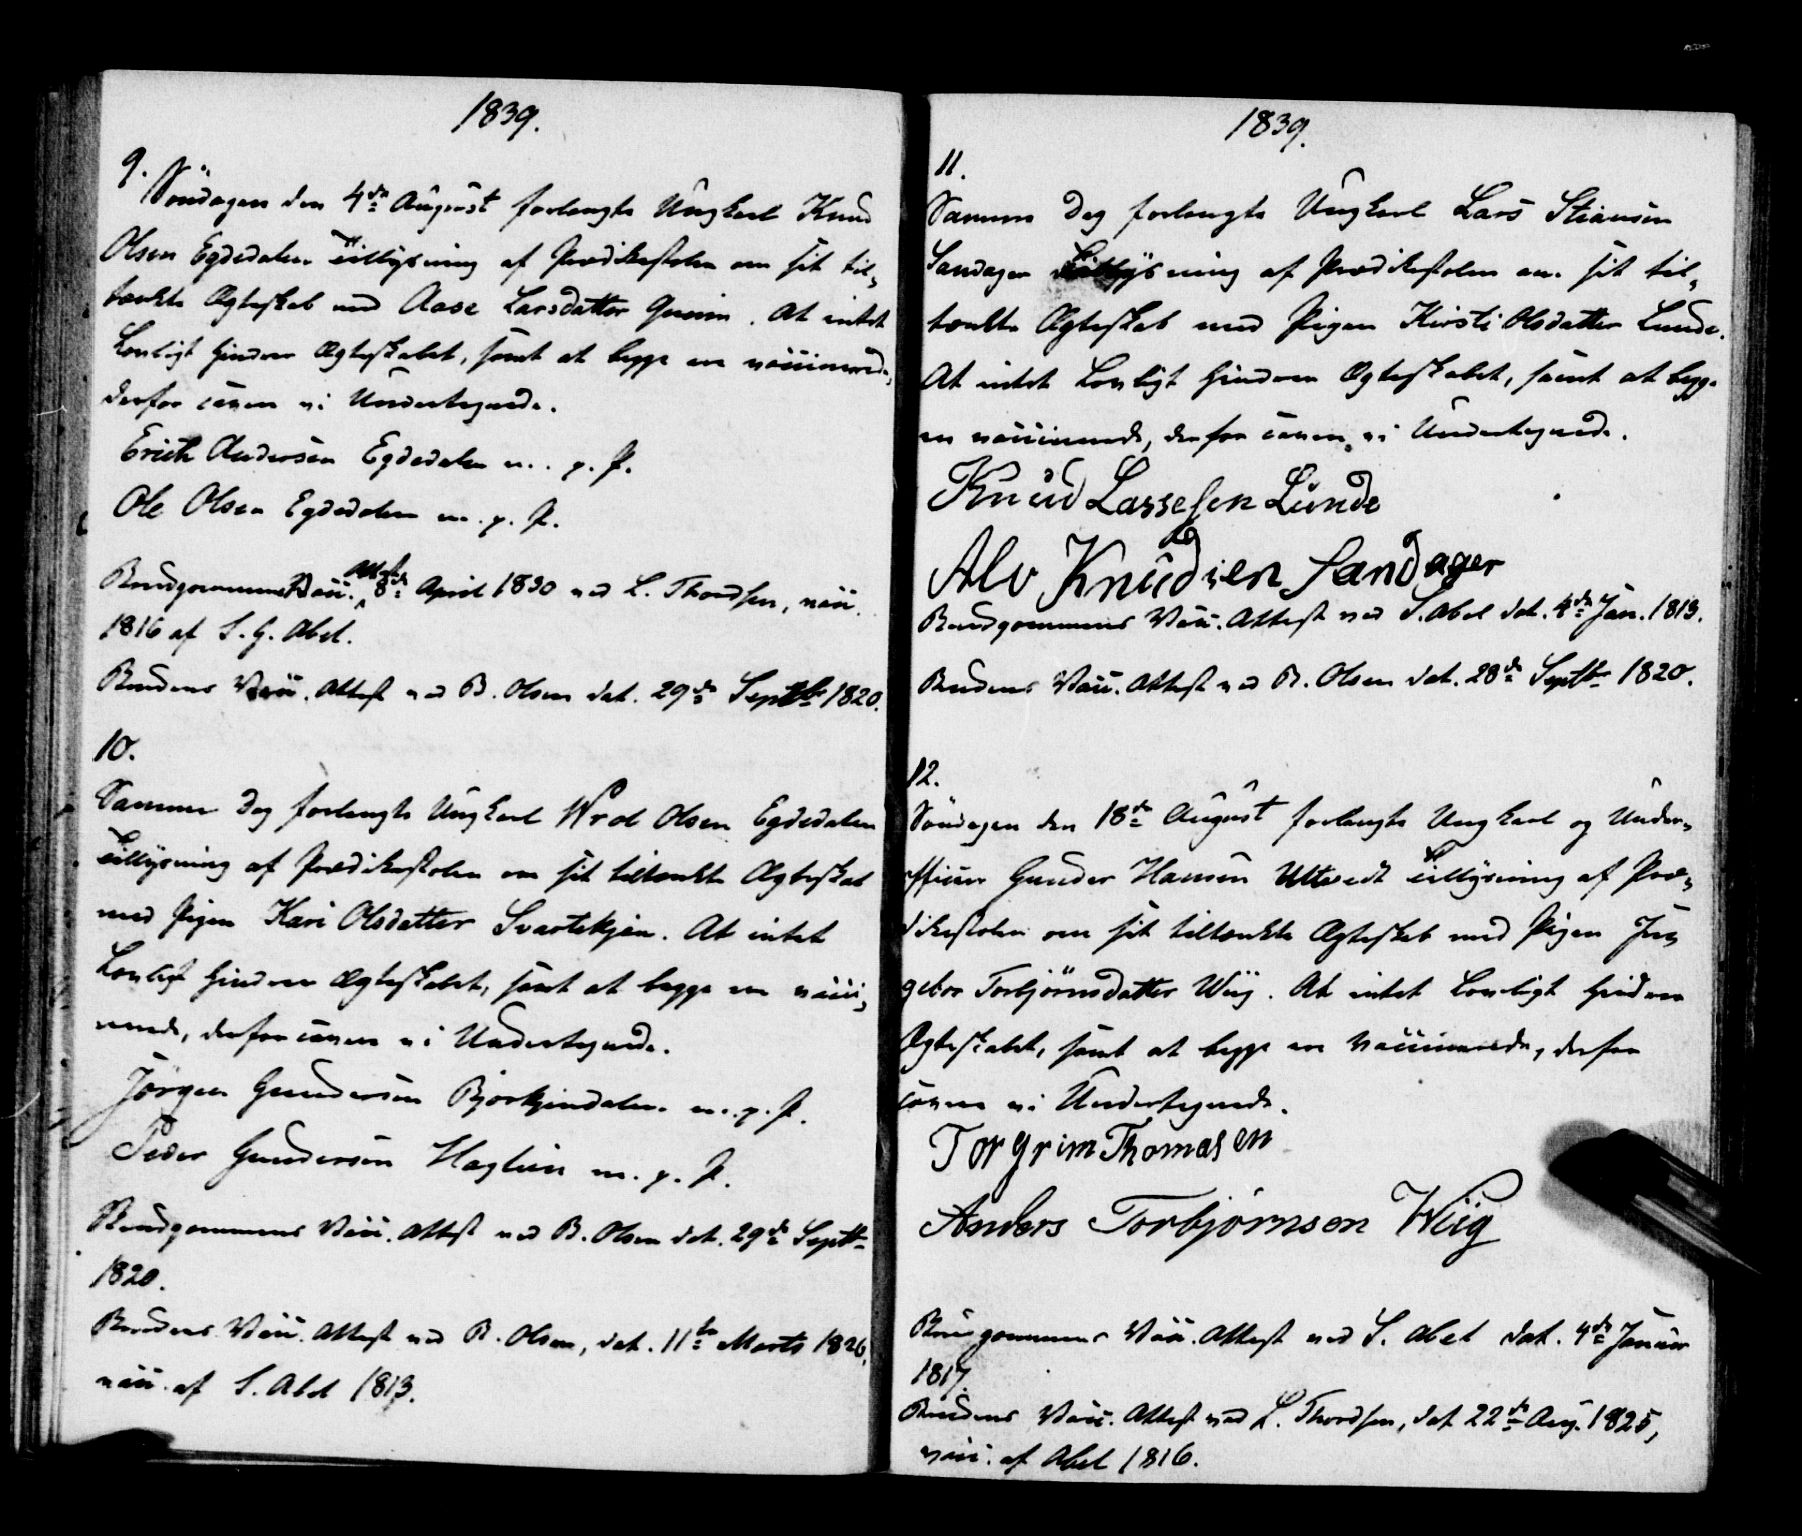 1839.
9.
Söndagen den 4de August forlangte Ungkarl Knud
Olsen Egdedalen Tillysning af Prædikestolen om sit til-
tænkte Ægteskab med Aase Larsdatter. At intet
Lovligt hindrer Ægteskabet, samt at begge ere vaccinerede,
derfor caverer vi Undertegnede.
Erich Andersen Egdedalen m. p. P.
Ole Olsen Egdedalen m. p. P.
Brudgommens Vacc. Attest 8de April 1830 ved L. Thordsen, vacc.
1816 af S. G. Abel.
Brudens Vacc. Attest ved B. Olsen dat. 29de Septbr 1820.
10.
Samme Dag forlangte Ungkarl Wrol Olsen Egdedalen
Tillysning af Prædikestolen om sit tiltænkte Ægteskab
med Pigen Kari Olsdatter Svartekjen. At intet
Lovligt hindrer Ægteskabet, samt at begge ere vacci-
nerede, derfor caverer vi Undertegnede.
Jörgen Gundersen Bjorkjendalen m. p. P.
Peder Gundersen Haglien m. p. P.
Brudgommens Vacc. Attest ved B. Olsen dat. 29de Septbr
1820.
Brudens Vacc. Attest ved B. Olsen, dat. 11te Marts 1826,
vacc. af S. Abel 1813.
1839.
11.
Samme Dag forlangte Ungkarl Lars Stiansen
Sandager Tillysning af Prædikestolen om sit til-
tænkte Ægteskab med Pigen Kirsti Olsdatter Lunde.
At intet Lovligt hindrer Ægteskabet, samt at begge
ere vaccinerede, derfor caverer vi Undertegnede.
Knud Lassesen Lunde
Alv Knudsen Sandager
Brudgommens Vacc. Attest ved S. Abel dat. 4de Jan. 1813.
Brudens Vacc. Attest ved B. Olsen dat. 28de Septbr 1820.
12.
Söndagen den 18de August forlangte Ungkarl og Under-
officier Gunder Hansen Ultvedt Tillysning af Præ-
dikestolen om sit tiltænkte Ægteskab med Pigen In-
gebor Torbjörnsdatter Wiig. At intet Lovligt hindrer
Ægteskabet, samt at begge ere vaccinerede, derfor
caverer vi Undertegnede.
Torgrim Thomasen
Anders Torbjørnsen Wiig
Brudgommens Vacc. Attest ved S. Abel dat. 4de Januar
1817.
Brudens Vacc. Attest ved L. Thordsen, dat 22de Aug. 1825,
vacc. af Abel 1816.